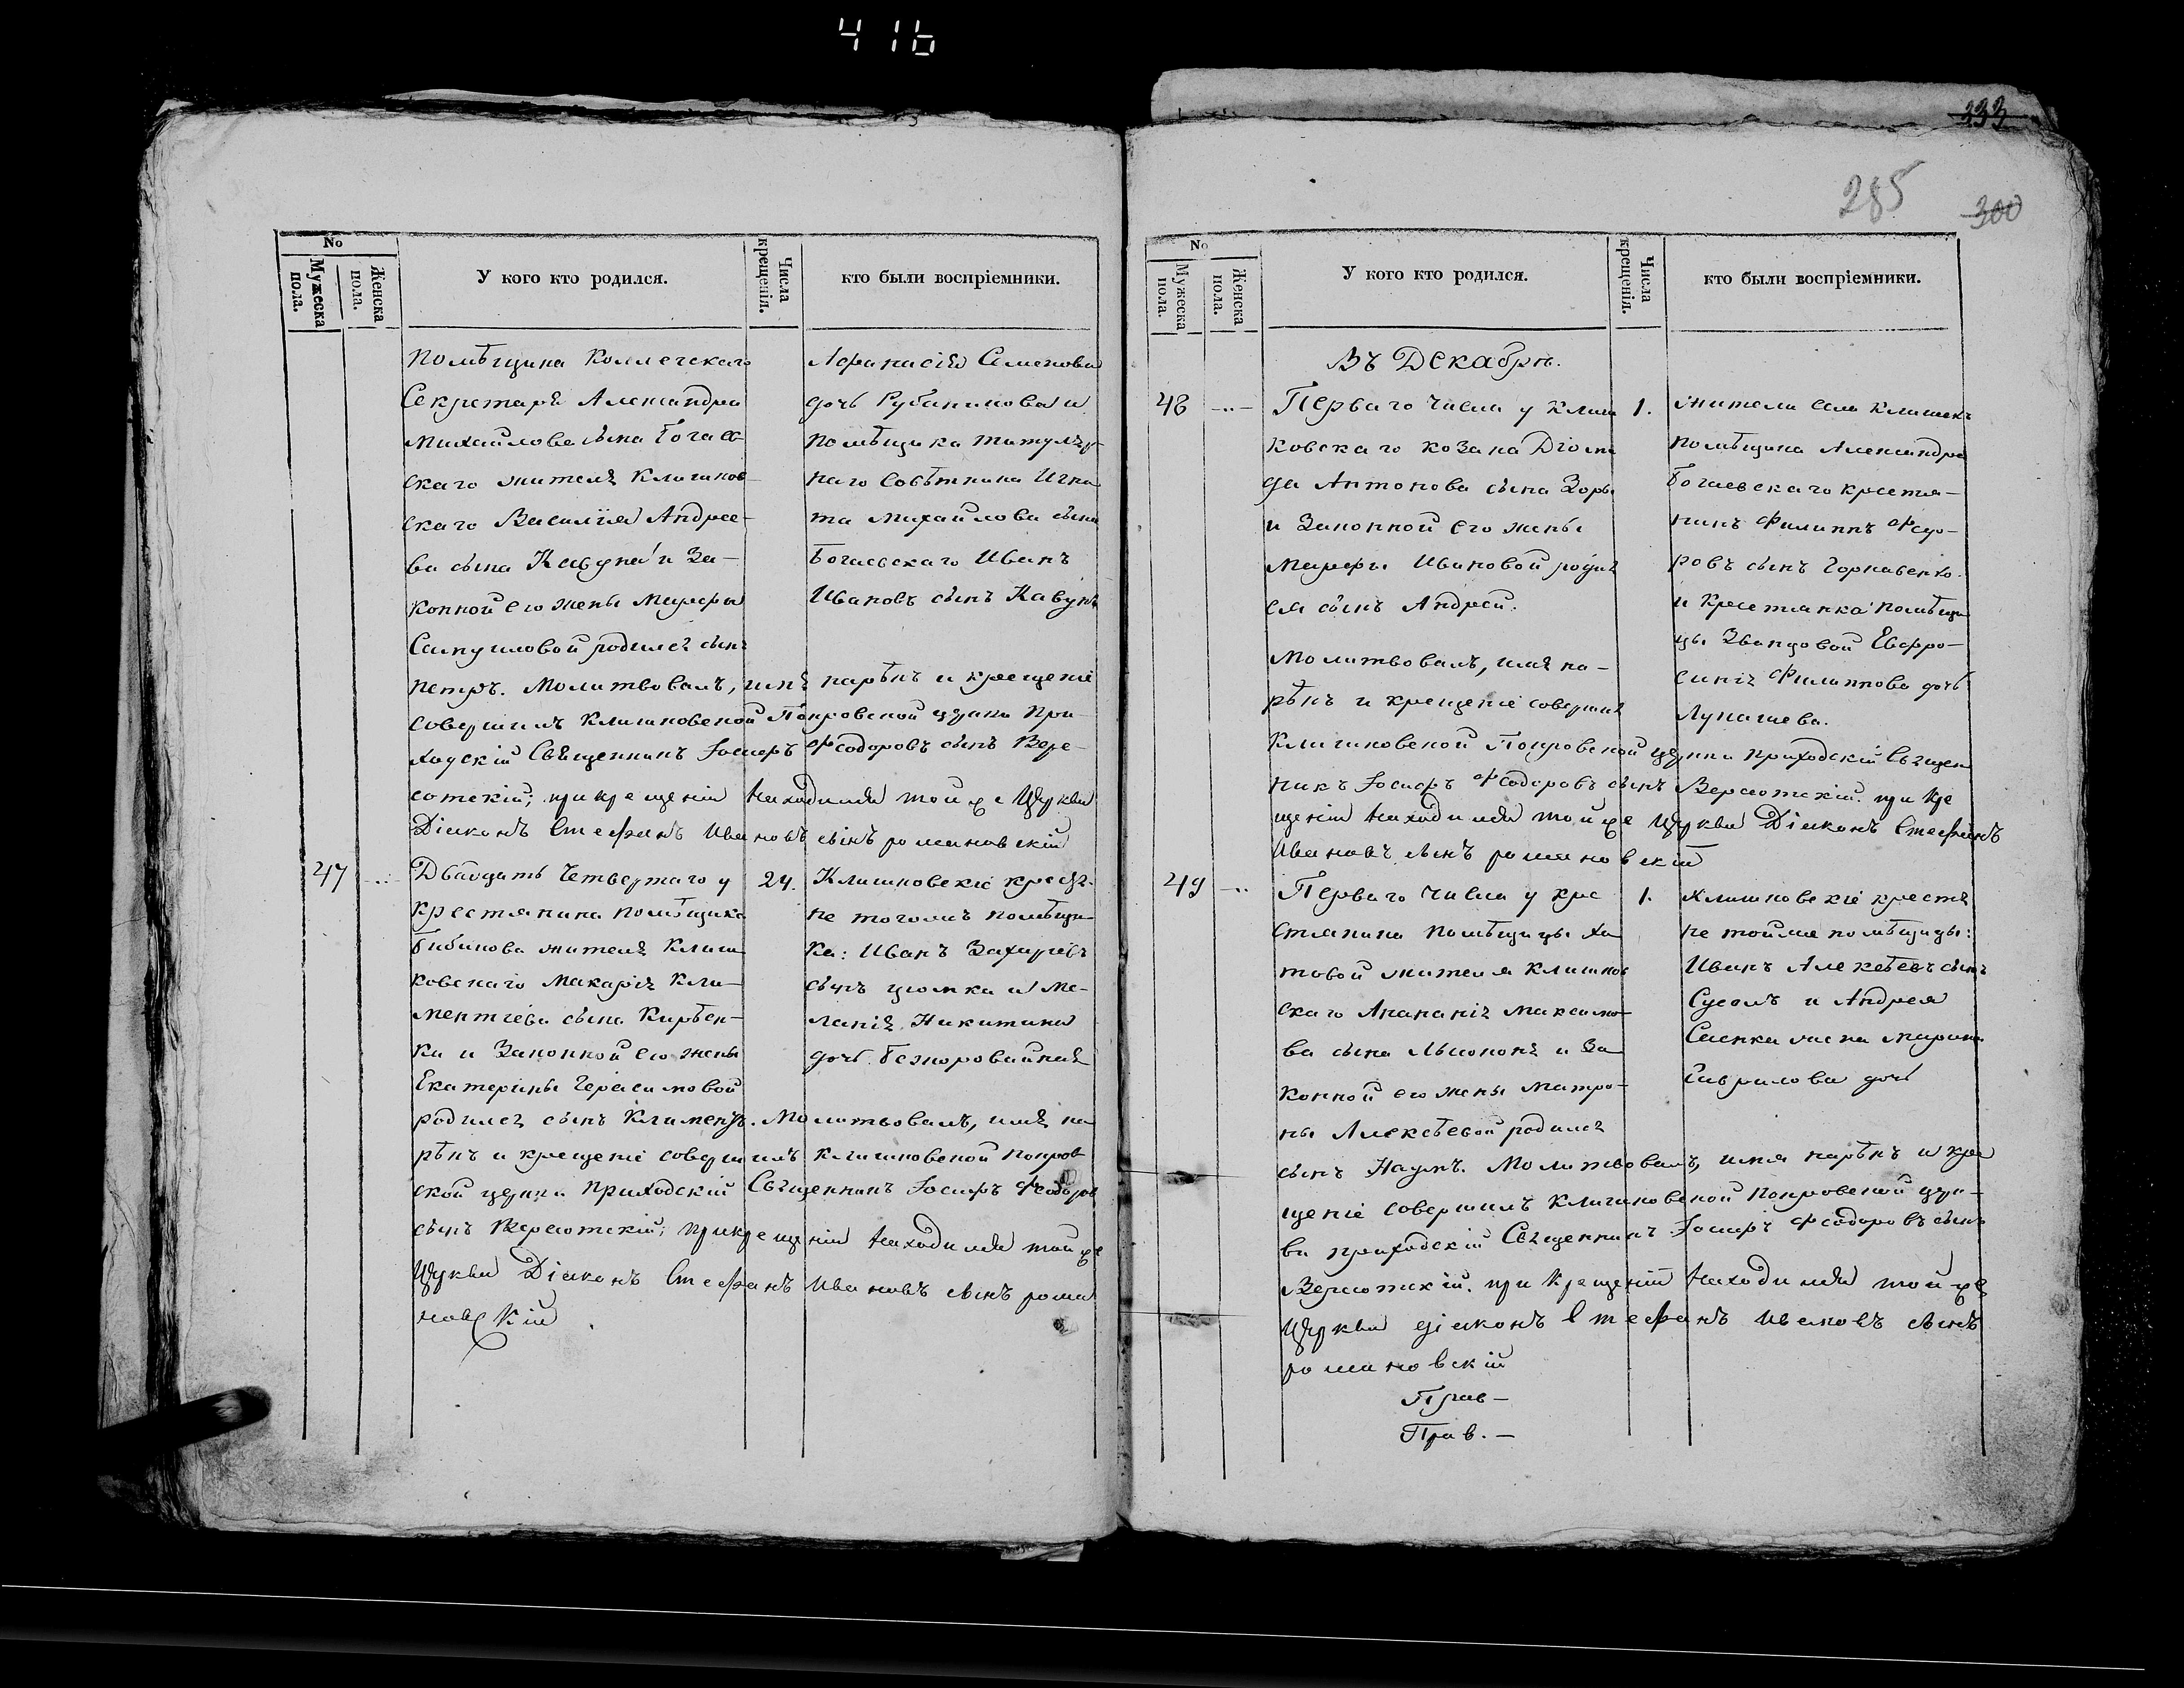 416
333
285
300
No
Мужеска пола.
Женска пола.
У кого кто родился.
Числа крещенія.
кто были воспріемники.
помѣщика Коллегскаго
Секретаря Александра
Михайлова сына Богаев-
скаго жителя Клишков-
скаго Василія Андрее-
ва сына Кавуна и За-
конной его жены Марфы
Самуиловой родился сынъ
Петръ. Молитвовалъ, имя нарѣкъ и крещеніе
совершилъ Клишковской Покровской церкви При-
ходскій Священникъ Іосифъ Феодоровъ сынъ Вере-
сотскій; при крещеніи находился той же Церкви
Діяконъ Стефанъ Ивановъ сынъ романовскій
Афанасія Семенова
дочь и
помѣщика титуляр-
наго Совѣтника Игна
та Михайлова сына
Богаевскаго Иванъ
Ивановъ сынъ Кавунъ
47
Двадцать Четвертаго у
крестянина помѣщика
Бибикова жителя Клиш
ковскаго Макарія Кли-
ментіева сына
ка и Законной его жены
Екатерины Герасимовой
родился сынъ Климентъ. Молитвовалъ, имя на
рѣкъ и крещеніе совершилъ Клишковской Покров
ской церкви Приходскій Священникъ Іосифъ Феодоров
сынъ Вересотскій; при крещеніи находился той же
Церкви Діяконъ Стефанъ Ивановъ сынъ рома
новскій
24.
Клишковскіе крестя-
не тогожъ помѣщи-
ка: Иванъ Захаревъ
сынъ и Ме-
ланія Никитина
дочь Безкоровайная
No
Мужеска пола.
Женска пола.
У кого кто родился.
Числа крещенія.
кто были воспріемники.
Въ Декабрѣ.
48
Перваго числа у Клиш
ковскаго козака Діоми
да Антонова сына Зоры
и Законной его жены
Марфы Ивановой родил
ся сынъ Андрей.
Молитвовалъ, имя на-
рѣкъ и крещеніе совершил
Клишковской Покровской церкви приходскій Священ
никъ Іосифъ Феодоровъ сынъ Вересотскій. при кре
щеніи находился той же Церкви Діяконъ Стефанъ
Ивановъ сынъ романовскій
1.
жители села Клишекъ
помѣщика Александра
Богаевскаго крестя-
нинъ Филиппъ Федо-
ровъ сынъ
и Крестянка помѣщи
цы Евфро-
синія Филиппова дочь
Лупашева.
49
Перваго числа у кре
стянина помѣщицы
жителя Клишков
скаго Ананія Максимо-
ва сына и За
конной его жены Матро-
ны Алексѣевой родился
сынъ Наумъ. Молитвовалъ, имя нарѣкъ и кре
щеніе совершилъ Клишковской Покровской церк-
ви приходскій Священникъ Іосифъ Феодоровъ сынъ
Вересотскій. при Крещеніи находился той же
Церкви діяконъ Стефанъ Ивановъ сынъ
романовскій
1.
Клишковскіе крестя
не тойже помѣщицы:
Иванъ Алексѣевъ сынъ
и Андрея
жена Марина
Гаврилова дочь
Прав-
Прав.-